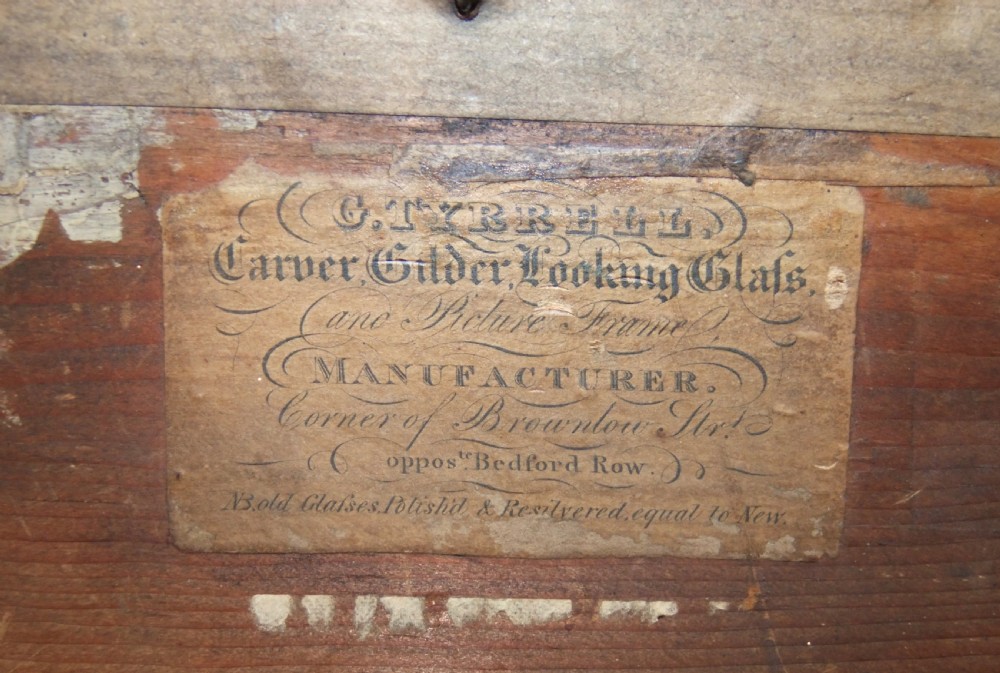 G. TYRRELL,
Carver, Gilder, Looking Glaſs,
and Picture Frame,
MANUFACTURER.
Corner of Brownlow Strt.
opposte. Bedford Row.
NB. old Glaſses, Polish'd & Resilvered, equal to New.